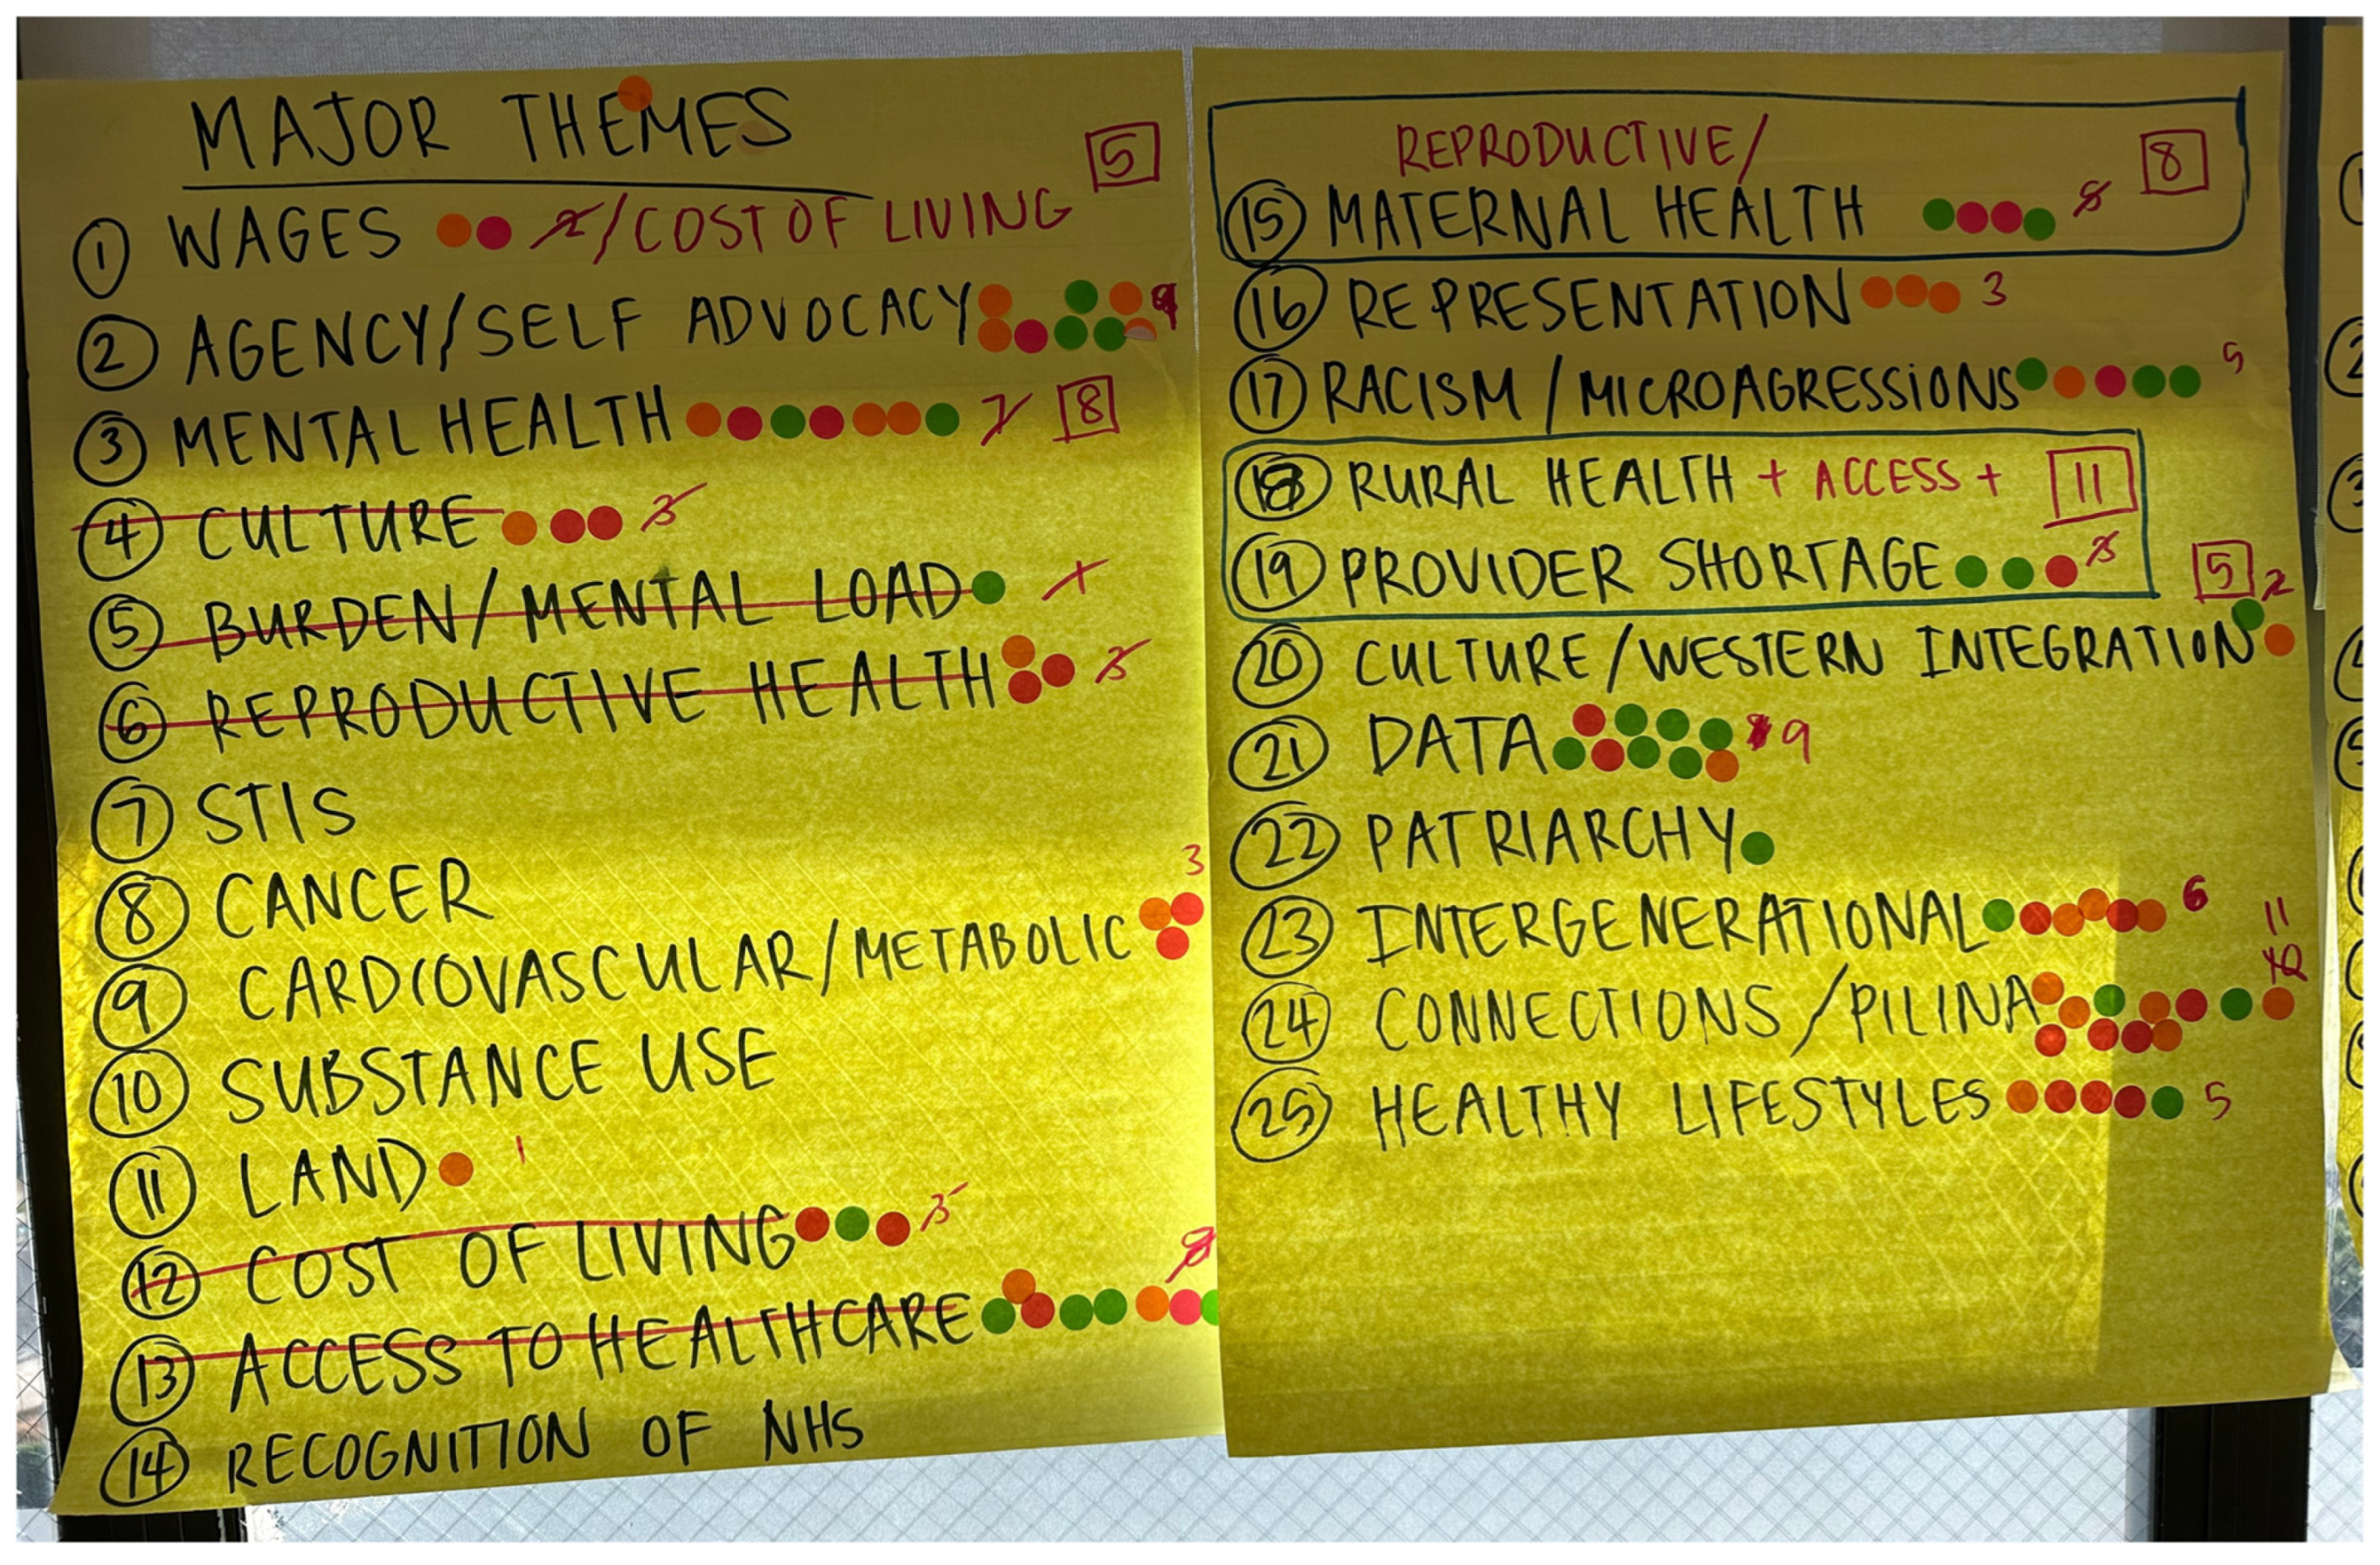 MAJOR THEMES
5
① WAGES 2 / COST OF LIVING
② AGENCY/SELF ADVOCACY 9
③ MENTAL HEALTH 7 8
④ CULTURE 3
⑤ BURDEN/MENTAL LOAD 1
⑥ REPRODUCTIVE HEALTH 3
⑦ STIS
⑧ CANCER
3
⑨ CARDIOVASCULAR/METABOLIC
⑩ SUBSTANCE USE
⑪ LAND 1
⑫ COST OF LIVING 3
⑬ ACCESS TO HEALTHCARE 8
⑭ RECOGNITION OF NHS
REPRODUCTIVE/ 8
⑮ MATERNAL HEALTH
⑯ REPRESENTATION 3
⑰ RACISM/MICROAGRESSIONS 5
⑱ RURAL HEALTH + ACCESS + 11
⑲ PROVIDER SHORTAGE 3
5 2
⑳ CULTURE/WESTERN INTEGRATION
㉑ DATA 9
㉒ PATRIARCHY
㉓ INTERGENERATIONAL 6
11
10
㉔ CONNECTIONS/PILINA
㉕ HEALTHY LIFESTYLES 5